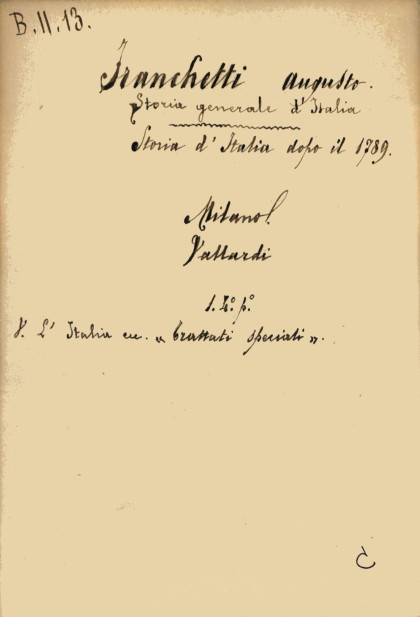 B. II. 13.
Franchetti Augusto.
Storia generale d'Italia
Storia d'Italia dopo il 1789.
Milano
Vallardi
V. L'Italia ec. „ Trattati speciali „.